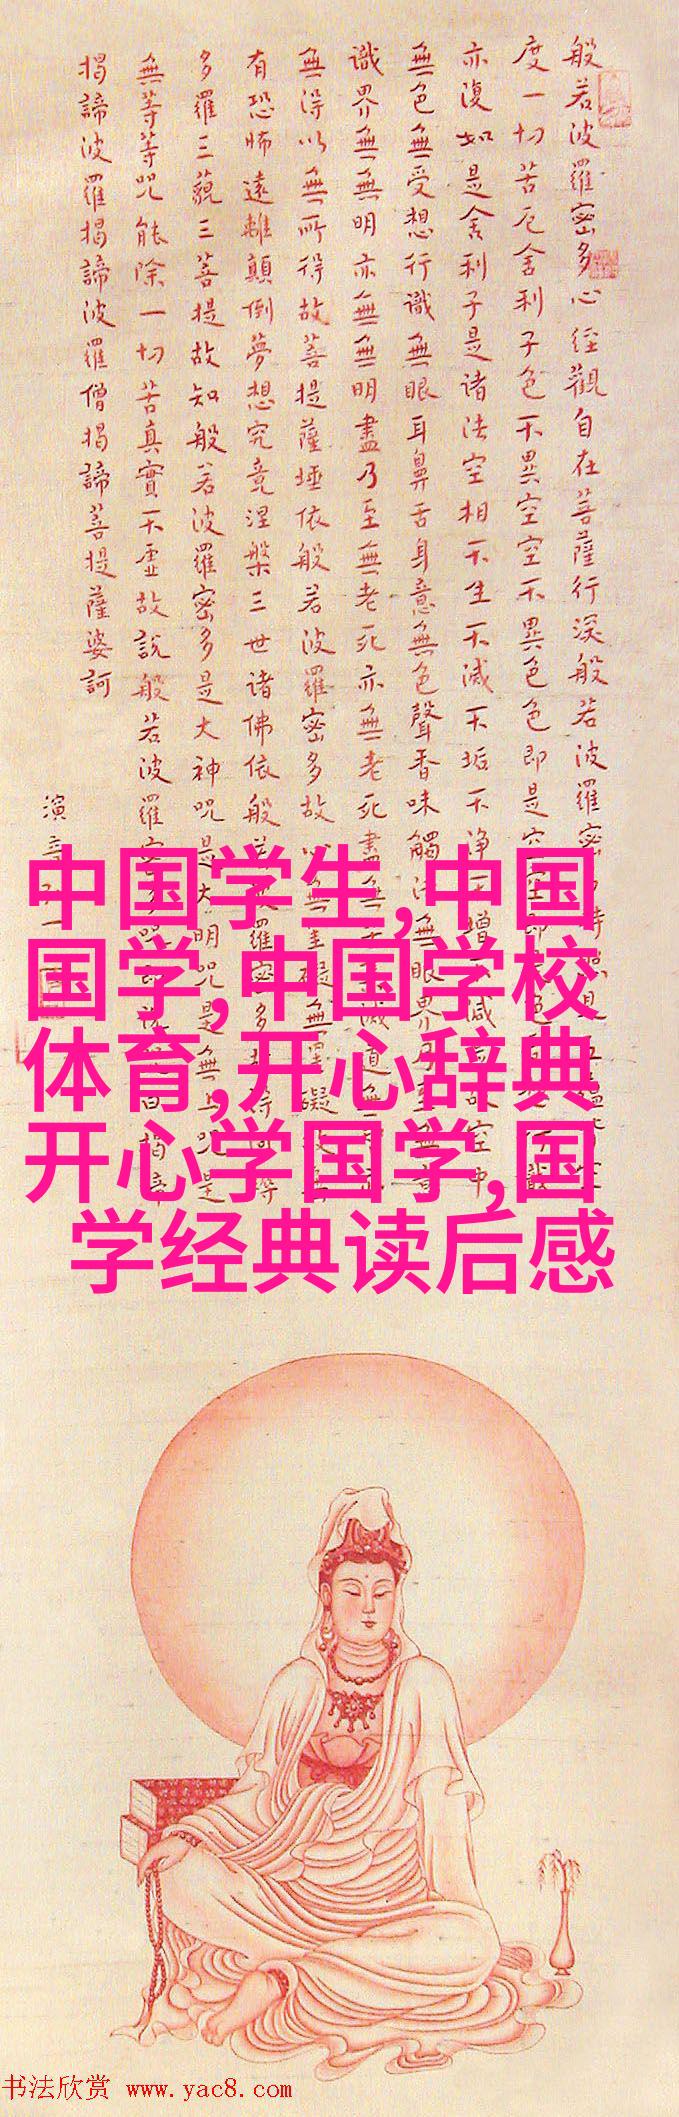 般若波羅密多心经觀自在菩薩行深般若波羅密多時照見五
度一切苦厄舍利子色不異空空不異色色即是空空即是色
亦復如是舍利子是诸法空相不生不滅不垢不净不增不減故空中
無色無受想行識無眼耳鼻舌身意無色聲香味觸法無眼界乃至無意
識界無無明亦無無明盡乃至無老死亦無老死盡無滅道無亦
無得以無所得故菩提薩埵依般若波羅密多故心無罣礙無罣礙故無
有恐怖遠離顛倒夢想究竟涅槃三世诸佛依般若波羅密多故得阿耨
多羅三藐三菩提故知般若波羅密多是大神咒是大明咒是無上咒是
無等等咒能除一切苦真實不虚故說般若波羅密多咒即說咒曰揭諦
揭諦波羅揭諦波羅僧揭諦菩提薩婆訶
演音
中国学生,中国
国学,中国学校
体育,开心辞典
开心学国学,国
学经典读后感
书法欣赏 www.yac8.com